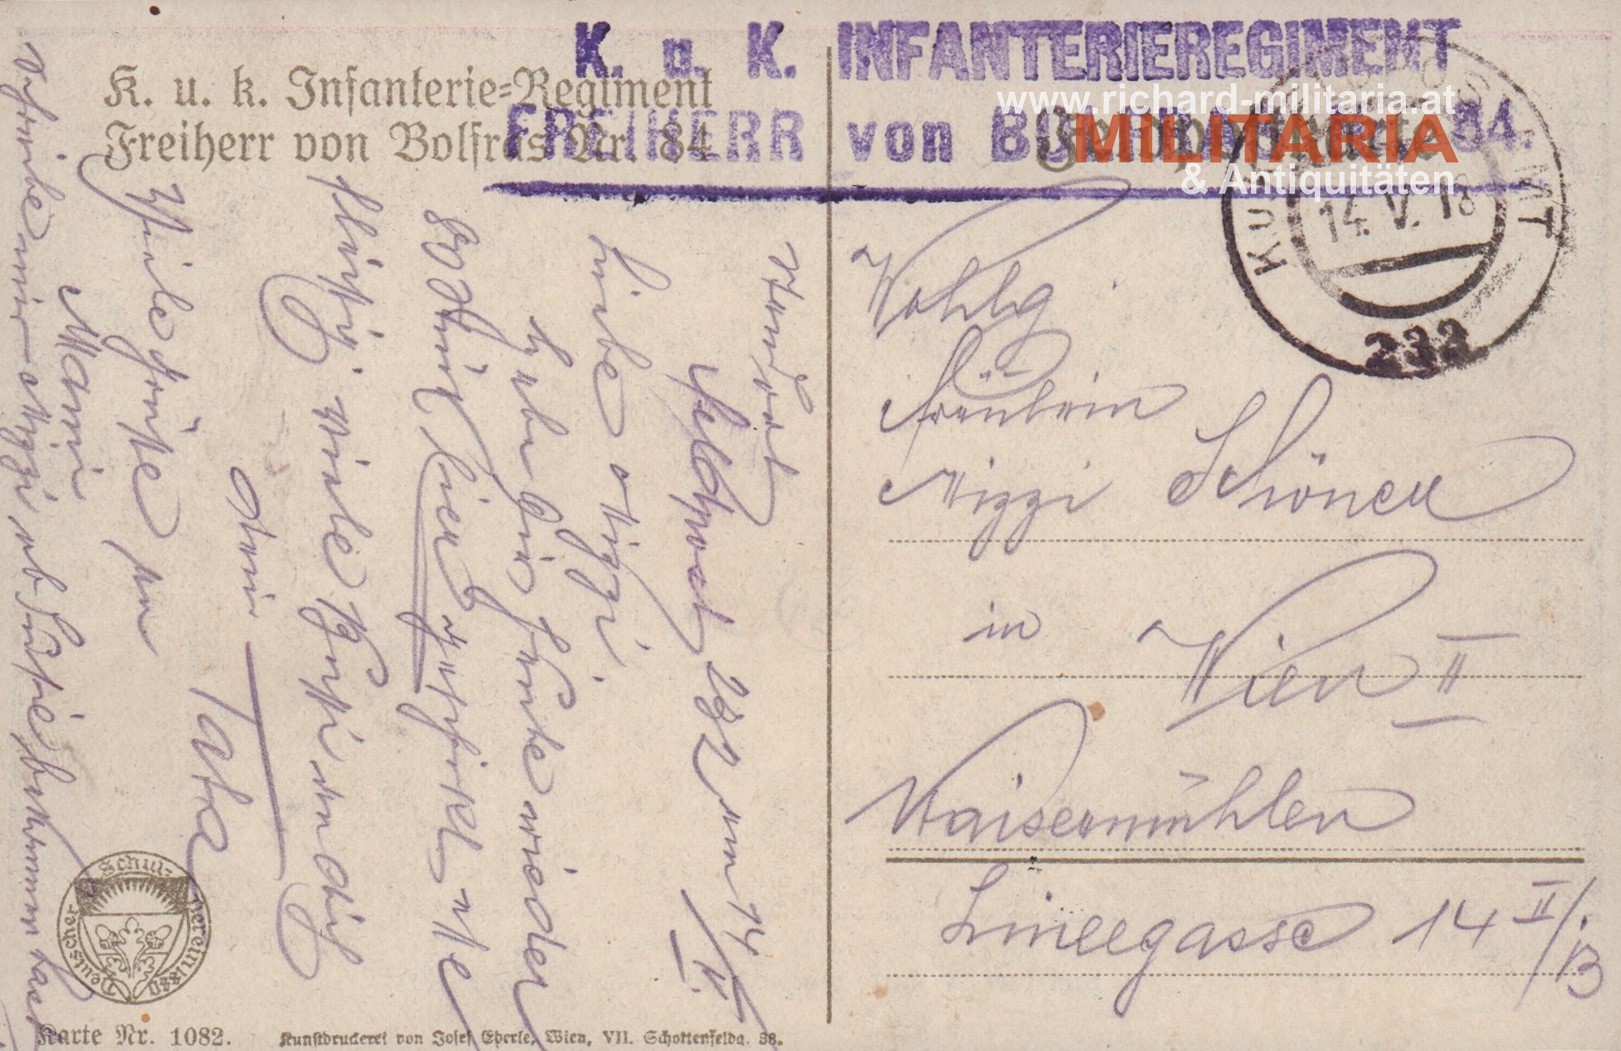 K. u. K. INFANTERIEREGIMENT
FREIHERR von Nr. 84.
K. u. k. Infanterie=Regiment
Freiherr von Bolfras Nr. 84
www.richard-militaria.at
MILITARIA
& Antiquitäten
14. V. 18
232
Wohlg
Fräulein
Mizzi Schöner
in Wien II
Kaisermühlen
14 II/B
Feldpost 232 am 14/V.
Liebe Mizzi.
Habe dir heute wieder
80
viele Bussi an dich
dein Tata
Viele Grüße an
Mami
Schreibe mir Mizzi ob
Deutscher Schulverein 1880
Karte Nr. 1082.
Kunstdruckerei von Josef Eberle, Wien, VII. Schottenfeldg. 38.